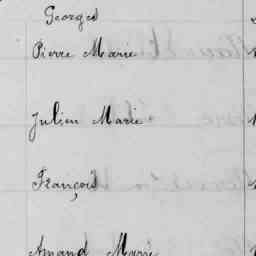 Georges
Pierre Marie
Julien Marie
François
Amand Marie